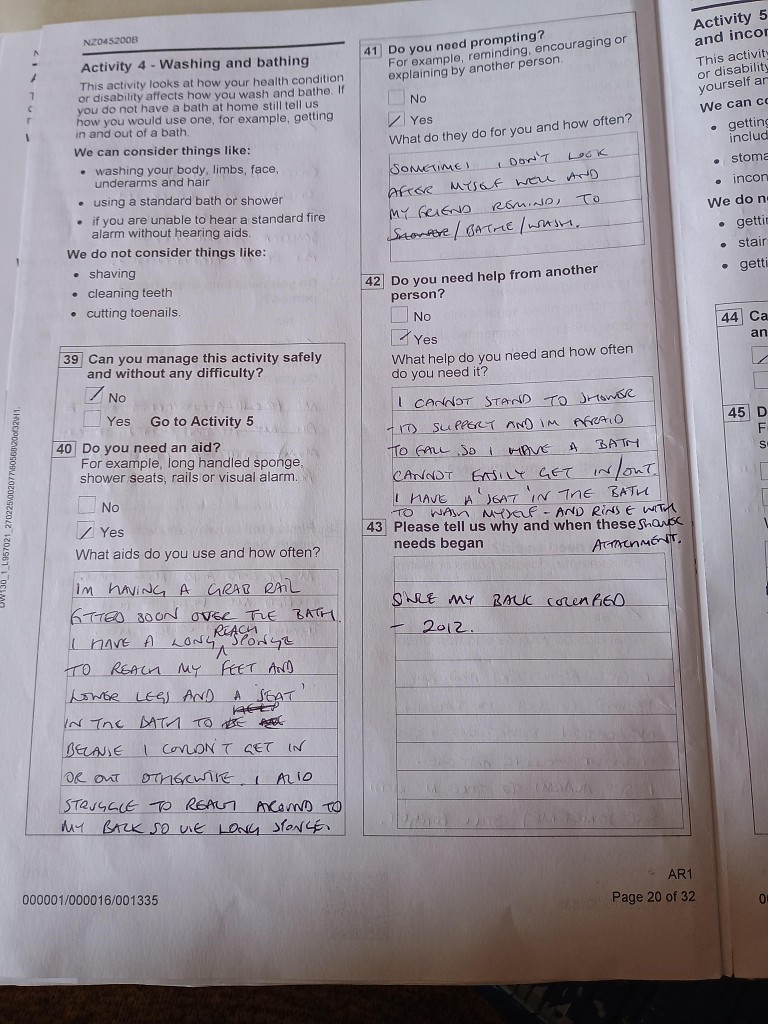 NZ045200B
Activity 4 - Washing and bathing
This activity looks at how your health condition
or disability affects how you wash and bathe. If
you do not have a bath at home still tell us
how you would use one, for example, getting
in and out of a bath.
We can consider things like:
• washing your body, limbs, face,
underarms and hair
• using a standard bath or shower
• if you are unable to hear a standard fire
alarm without hearing aids.
We do not consider things like:
• shaving
• cleaning teeth
• cutting toenails.
39 Can you manage this activity safely
and without any difficulty?
No
Yes Go to Activity 5
40 Do you need an aid?
For example, long handled sponge,
shower seats, rails or visual alarm.
No
Yes
What aids do you use and how often?
IM HAVING A GRAB RAIL
FITTED SOON OVER THE BATH.
I HAVE A LONG REACH SPONGE
TO REACH MY FEET AND
LOWER LEGS AND A 'SEAT'
IN THE BATH TO
BECAUSE I COULDN'T GET IN
OR OUT OTHERWISE. I ALSO
STRUGGLE TO REACH AROUND TO
MY BACK SO USE LONG SPONGE.
000001/000016/001335
41 Do you need prompting?
For example, reminding, encouraging or
explaining by another person.
No
Yes
What do they do for you and how often?
SOMETIMES I DON'T LOOK
AFTER MYSELF WELL AND
MY FRIEND REMINDS TO
/ BATHE / WASH.
42 Do you need help from another
person?
No
Yes
What help do you need and how often
do you need it?
I CANNOT STAND TO SHOWER
- ITS SLIPPERY AND IM AFRAID
TO FALL. SO I HAVE A BATH
CANNOT EASILY GET IN/OUT.
I HAVE A 'SEAT' IN THE BATH
TO WASH MYSELF - AND RINSE WITH SHOWER
ATTACHMENT.
43 Please tell us why and when these
needs began
SINCE MY BACK
- 2012.
AR1
Page 20 of 32
Activity 5
and incor
This activit
or disability
yourself an
We can co
• getting
includ
• stoma
• incon
We do n
• gettin
• stair
• getti
44 Ca
an
45 D
F